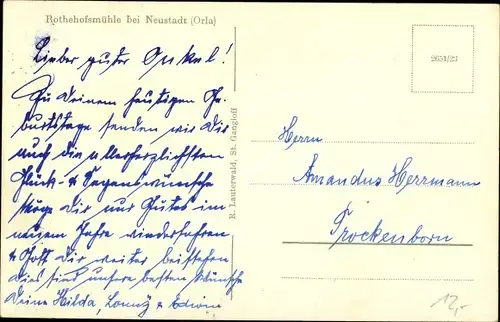 Rothehofsmühle bei Neustadt (Orla)
Lieber guter Onkel!
Zu Deinem heutigen Ge-
burtstage senden wir Dir
auch die allerherzlichsten
Glück- & Segenswünsche
Möge Dir nur Gutes im
neuen Jahre wiederfahren
& Gott Dir weiter beistehen
dies sind unsere besten Wünsche
Deine Hilda, & Edwin
R. Lauterwald, St. Gangloff
2651/23
Herrn
Amandus Herrmann
Trockenborn
12,-